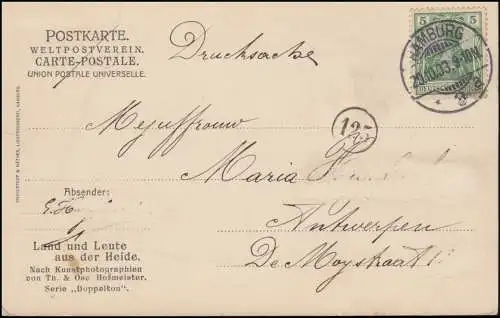 POSTKARTE.
WELTPOSTVEREIN.
CARTE-POSTALE.
UNION POSTALE UNIVERSELLE.
Drucksache
5 5
HAMBURG
20.10.03. 9-10 V.
* 8 a
Mejuffrouw
12
Maria
Antwerpen
De Moystraat
Absender:
G. H
Land und Leute
aus der Heide.
Nach Kunstphotographien
von Th. & Osc. Hofmeister.
Serie „Doppelton".